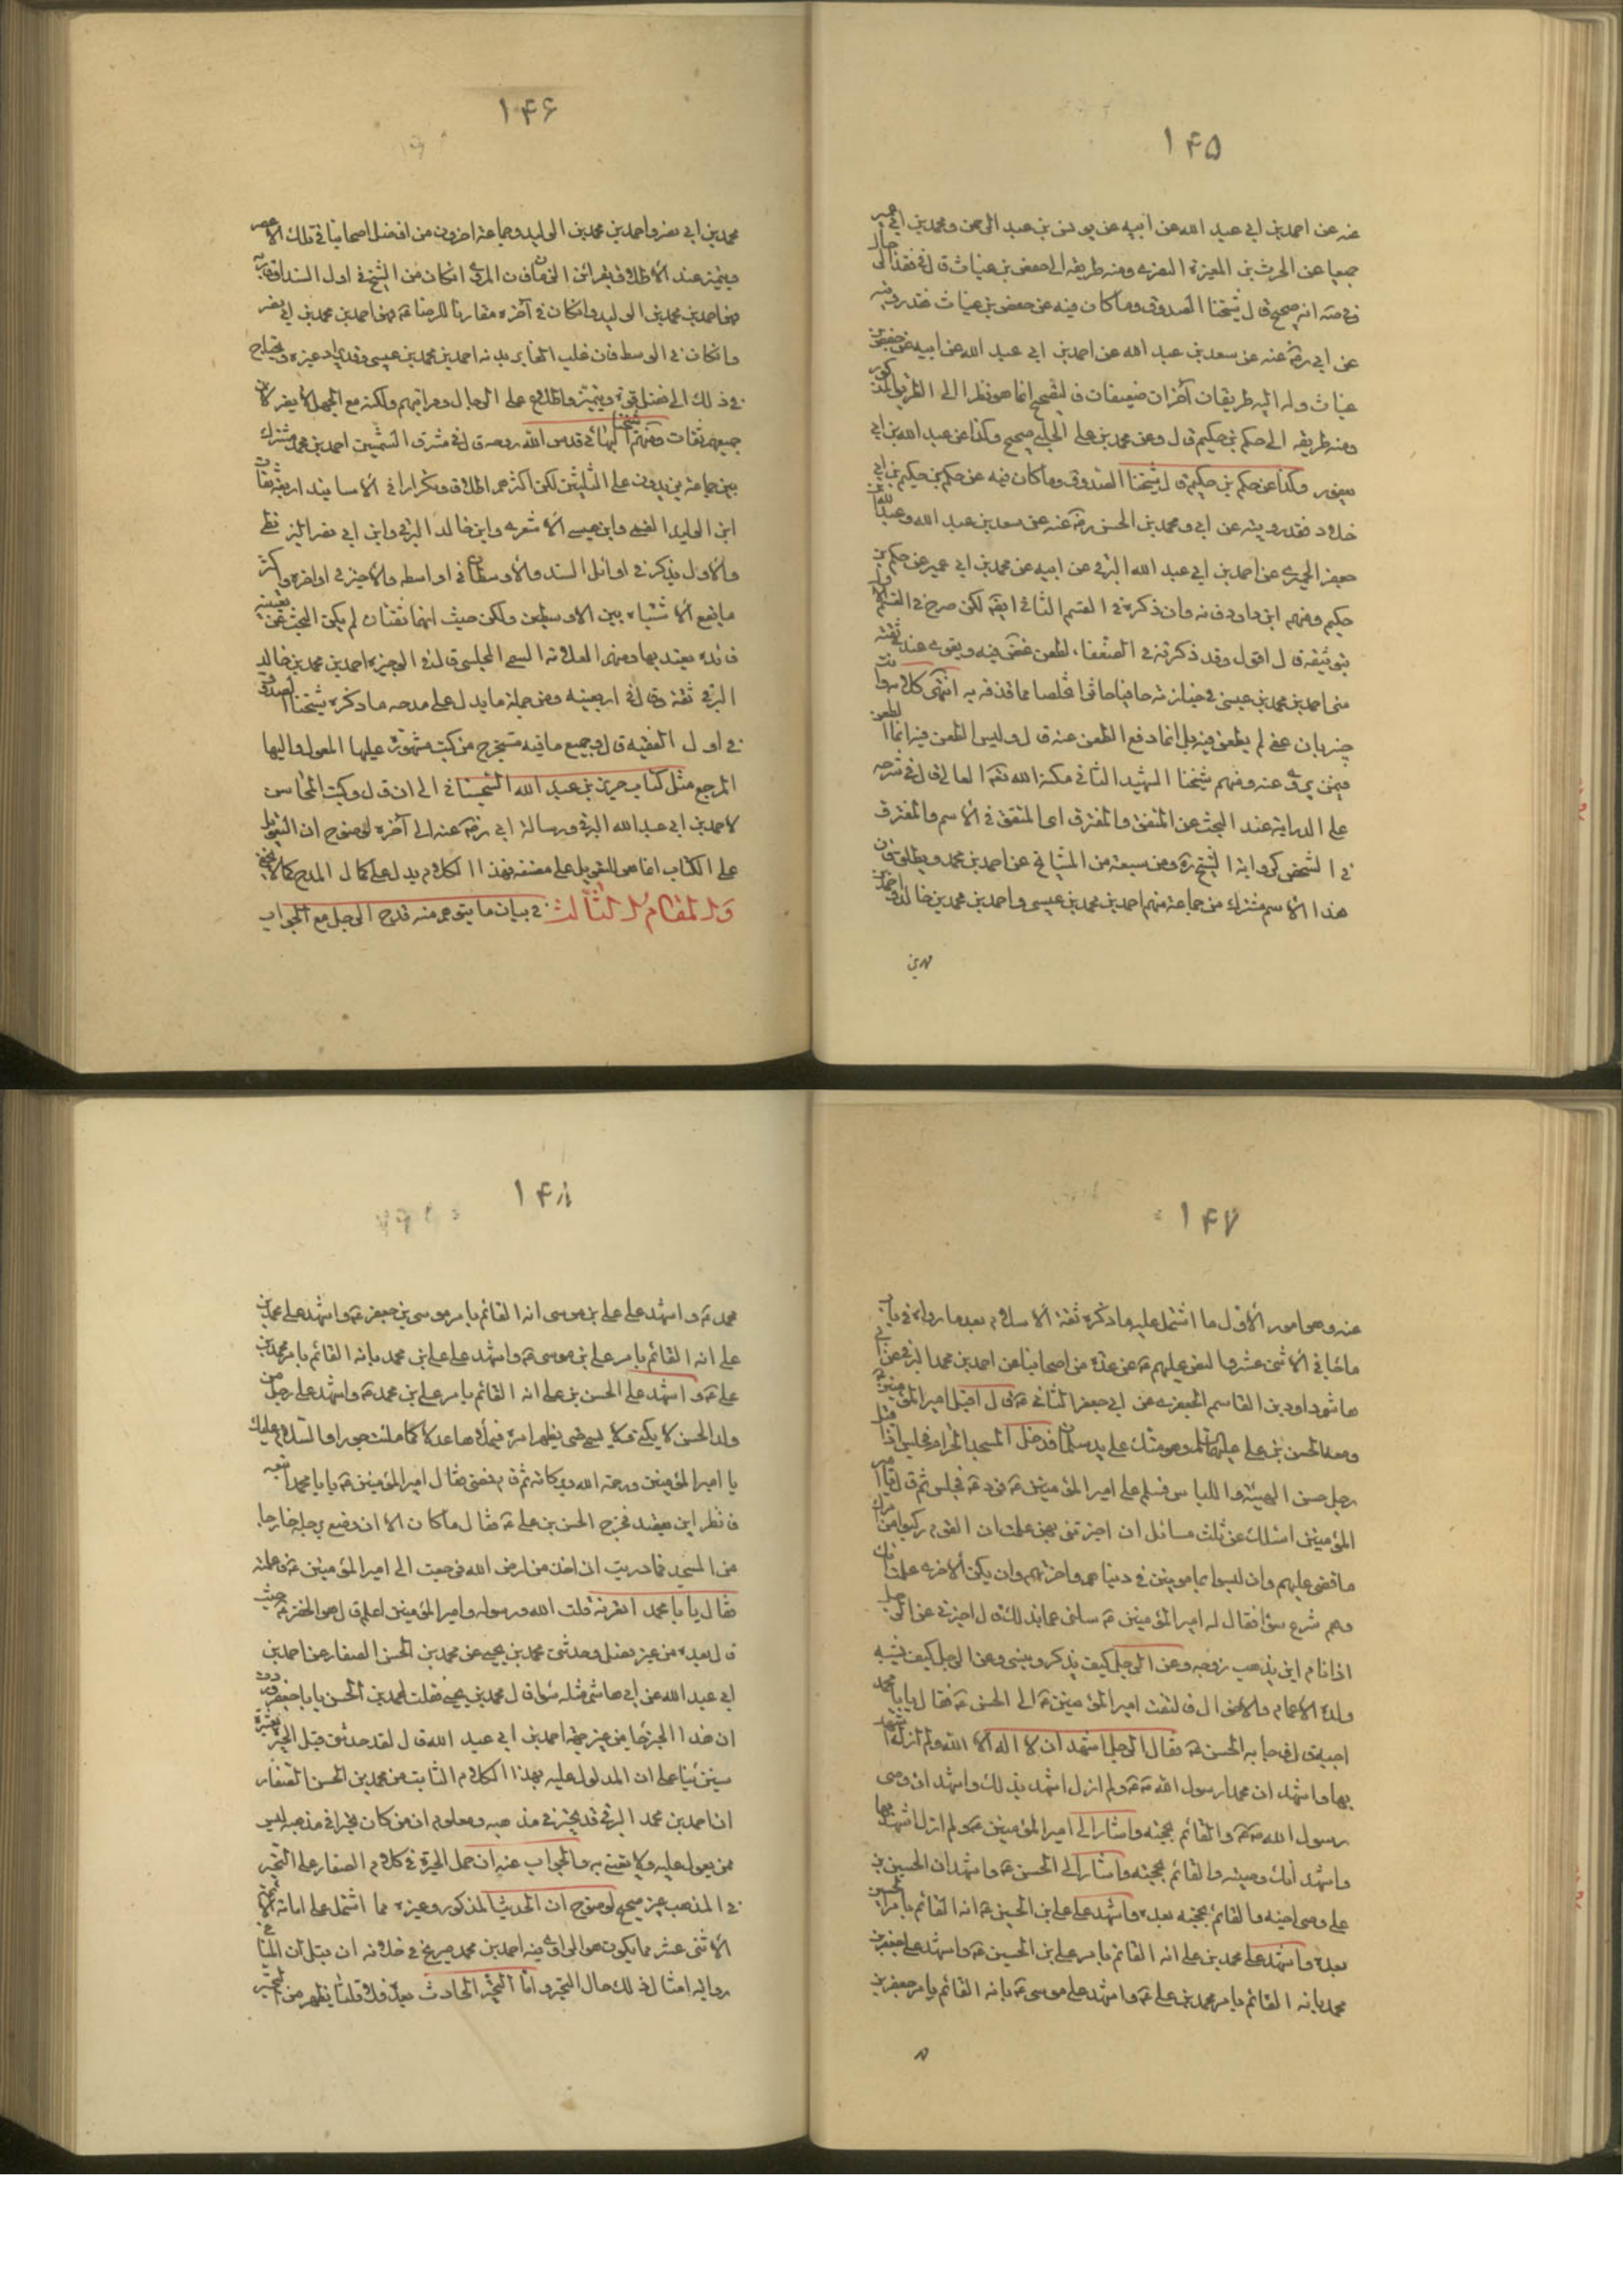 ۱۴۵
عنه عن احمد بن ابي عبد الله عن ابيه عن يونس بن عبد الرحمن ومحمد بن ابي عمير
جميعا عن الحرث بن المغيرة النصرى ومنه طريقه الى حفص بن غياث قال فى نقد الرجال
انه صحيح قال شيخنا الصدوق وما كان فيه عن حفص بن غياث فقد رويته
عن ابي ره عنه عن سعد بن عبد الله عن احمد بن ابي عبد الله عن ابيه عن حفص بن
غياث وله اليه طريقان آخران ضعيفان فالتصحيح انما هو نظرا الى الطريق المذكور
ومنه طريقه الى حكم بن حكيم قال وعن محمد بن على الحلبى صحيح وكذا عن عبد الله بن ابي
يعفور وكذا عن حكم بن حكيم قال شيخنا الصدوق وما كان فيه عن حكم بن حكيم بن اخى
خلاد فقد رويته عن ابي ومحمد بن الحسن ره عنه عن سعد بن عبد الله وعبد الله بن
جعفر الحميرى عن احمد بن ابي عبد الله البرقى عن ابيه عن محمد بن ابي عمير عن حكم بن
حكيم ومنهم ابن داود فانه وان ذكره فى القسم الثانى ايضا لكن صرح فى القسم الاول
بتوثيقه قال اقول وقد ذكرته فى الضعفاء لطعن غض فيه ويقوى عندى ثقته
مشى احمد بن محمد بن عيسى فى جنازته حافيا حاسرا تخلصا مما قذفه به انتهى كلامه
بان غض لم يطعن فيه بل انما دفع الطعن عنه قال وليس الطعن فيه انما الطعن
فيمن يروى عنه ومنهم شيخنا الشهيد الثانى مكنه الله تعالى قال فى شرحه
على الدراية عند البحث عن المتفق والمفترق اى المتفق فى الاسم والمفترق
فى الشخص كرواية الشيخ ره ومن سبقه من المشايخ عن احمد بن محمد ويطلق فان
هذا الاسم مشترك من جماعة منهم احمد بن محمد بن عيسى واحمد بن محمد بن خالد واحمد بن
۱۴۶
محمد بن ابي نصر واحمد بن محمد بن الوليد وجماعة اخرون من افضل اصحابنا فى تلك الاعصر
ويتميز عند الاطلاق بقرائن الزمان فان المروى ان كان من الشيخ فى اول السند او قاربه
فهو احمد بن محمد بن الوليد وان كان فى آخره مقارنا للرضا ع فهو احمد بن محمد بن ابي نصر
وان كان فى الوسط فان غلب احمد بن محمد بن عيسى وقد يراد غيره ويحتاج
فى ذلك الى فضل قوة وتميز واطلاع على الرجال ومراتبهم ولكنه مع الجهل لا يضر لان
جميعهم ثقات ومنهم شيخنا البهائى قدس الله روحه قال فى مشرق الشمسين احمد بن محمد مشترك
بين جماعة يزيدون على الثلثين لكن اكثرهم اطلاقا وتكرارا فى الاسانيد اربعة ثقات
ابن الوليد القمى وابن عيسى الاشعرى وابن خالد البرقى وابن ابي نصر البزنطى
والاول يذكر فى اوائل السند والاوسطان فى اواسطه والاخير فى اواخره واكثر
ما يقع الاشتباه بين الاوسطين ولكن حيث انهما ثقتان لم يكن البحث عن تعيينه
فائدة يعتد بها ومنهم العلامة السمى المجلسى قال فى الوجيزة احمد بن محمد بن خالد
البرقى ثقة وقال فى اربعينه ومن جملة ما يدل على مدحه ما ذكره شيخنا الصدوق
فى اول الفقيه قال وجميع ما فيه مستخرج من كتب مشهورة عليها المعول واليها
المرجع مثل كتاب حريز بن عبد الله السجستانى الى ان قال وكتب المحاسن
لاحمد بن ابي عبد الله البرقى ورسالة ابي رضى عنه الى آخره لوضوح ان التعويل
على الكتاب انما هو للتعويل على مصنفه فهذا الكلام يدل على كمال المدح كما لا يخفى
والمقام الثالث فى بيان ما يتوهم منه قدح الرجل مع الجواب
۱۴۷
عنه وهو امور الاول ما اشتمل عليه ما ذكره ثقة الاسلام بعد ما رواه فى باب
ما جاء فى الاثنى عشر والنص عليهم ع عن عدة من اصحابنا عن احمد بن محمد البرقى عن ابي
هاشم داود بن القاسم الجعفرى عن ابي جعفر الثانى ع قال اقبل امير المؤمنين ع
ومعه الحسن بن على عليهما السلم وهو متك على يد سلمان فدخل المسجد الحرام فجلس اذ اقبل
رجل حسن الهيئة واللباس فسلم على امير المؤمنين ع فرد ع فجلس ثم قال يا امير
المؤمنين اسئلك عن ثلث مسائل ان اخبرتنى بهن علمت ان القوم ركبوا من امرك
ما قضى عليهم وان ليسوا بمامونين فى دنياهم واخرتهم وان يكن الاخرى علمت انك
وهم شرع سواء فقال له امير المؤمنين ع سلنى عما بدا لك قال اخبرنى عن الرجل
اذا نام اين يذهب روحه وعن الرجل كيف يذكر وينسى وعن الرجل كيف يشبه
ولده الاعمام والاخوال فالتفت امير المؤمنين ع الى الحسن ع فقال يا با محمد
اجبه قال فاجابه الحسن ع فقال الرجل اشهد ان لا اله الا الله ولم ازل اشهد
بها واشهد ان محمدا رسول الله ص ولم ازل اشهد بذلك واشهد ان وصى
رسول الله ص والقائم بحجته واشار الى امير المؤمنين ع ولم ازل اشهد بها
واشهد انك وصيه والقائم بحجته واشار الى الحسن ع واشهد ان الحسين بن
على وصى اخيه والقائم بحجته بعده واشهد على على بن الحسين ع انه القائم بامر الحسين
بعده واشهد على محمد بن على انه القائم بامر على بن الحسين ع واشهد على جعفر بن
محمد بانه القائم بامر محمد بن على ع واشهد على موسى ع بانه القائم بامر جعفر بن
۱۴۸
محمد ع واشهد على على بن موسى انه القائم بامر موسى بن جعفر ع واشهد على محمد بن
على انه القائم بامر على بن موسى ع واشهد على على بن محمد بانه القائم بامر محمد بن
على ع واشهد على الحسن بن على انه القائم بامر على بن محمد ع واشهد على رجل من
ولد الحسن لا يكنى ولا يسمى حتى يظهر امره فيملأها عدلا كما ملئت جورا والسلام عليك
يا امير المؤمنين ورحمة الله وبركاته ثم قام فمضى فقال امير المؤمنين ع يا با محمد اتبعه
فانظر اين يقصد فخرج الحسن بن على ع فقال ما كان الا ان وضع رجله خارجا
من المسجد فما دريت اين اخذ من ارض الله فرجعت الى امير المؤمنين ع فاعلمته
فقال يا با محمد اتعرفه قلت الله ورسوله وامير المؤمنين اعلم قال هو الخضر ع حيث
قال بعده من غير فصل وحدثنى محمد بن يحيى عن محمد بن الحسن الصفار عن احمد بن
ابي عبد الله عن ابي هاشم مثله سواء قال محمد بن يحيى فقلت لمحمد بن الحسن يا با جعفر وددت
ان هذا الخبر جاء من غير جهة احمد بن ابي عبد الله قال لقد حدثنى قبل الحيرة بعشر
سنين بناء على ان المدلول عليه بهذا الكلام الثابت من محمد بن الحسن الصفار
ان احمد بن محمد البرقى قد تحير فى مذهبه ومعلوم ان من كان متحيرا فى مذهبه ليس
ممن يعول عليه ولا يعتنى به والجواب عنه ان حمل الحيرة فى كلام الصفار على التحير
فى المذهب غير صحيح لوضوح ان الحديث المذكور وغيره مما اشتمل على امامة الائمة
الاثنى عشر مما يكون هو الراوى فيه احمد بن محمد صريح فى خلافه ان قيل ان المنافى
رواية امثال ذلك حال التحير واما التحير الحادث بعده فلا قلنا يظهر من التحير